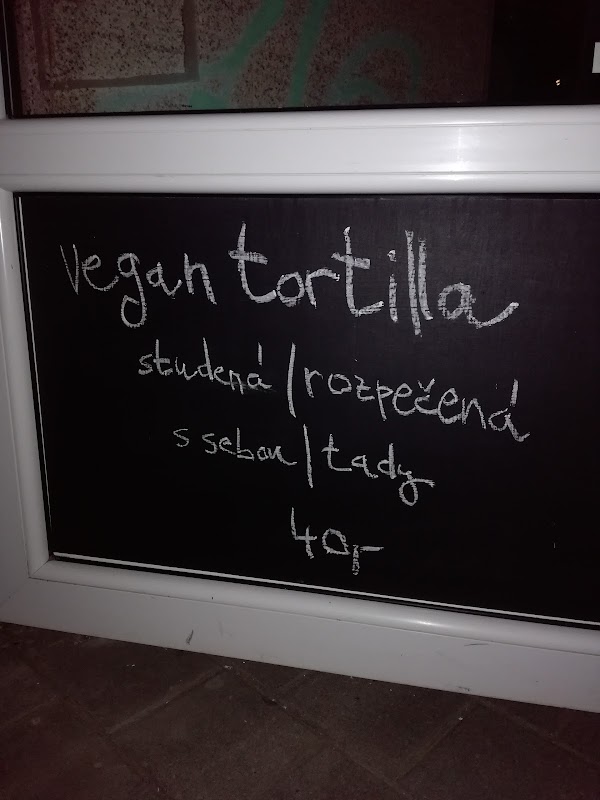 vegan tortilla
studená/rozpečená
s sebou/tady
40,-